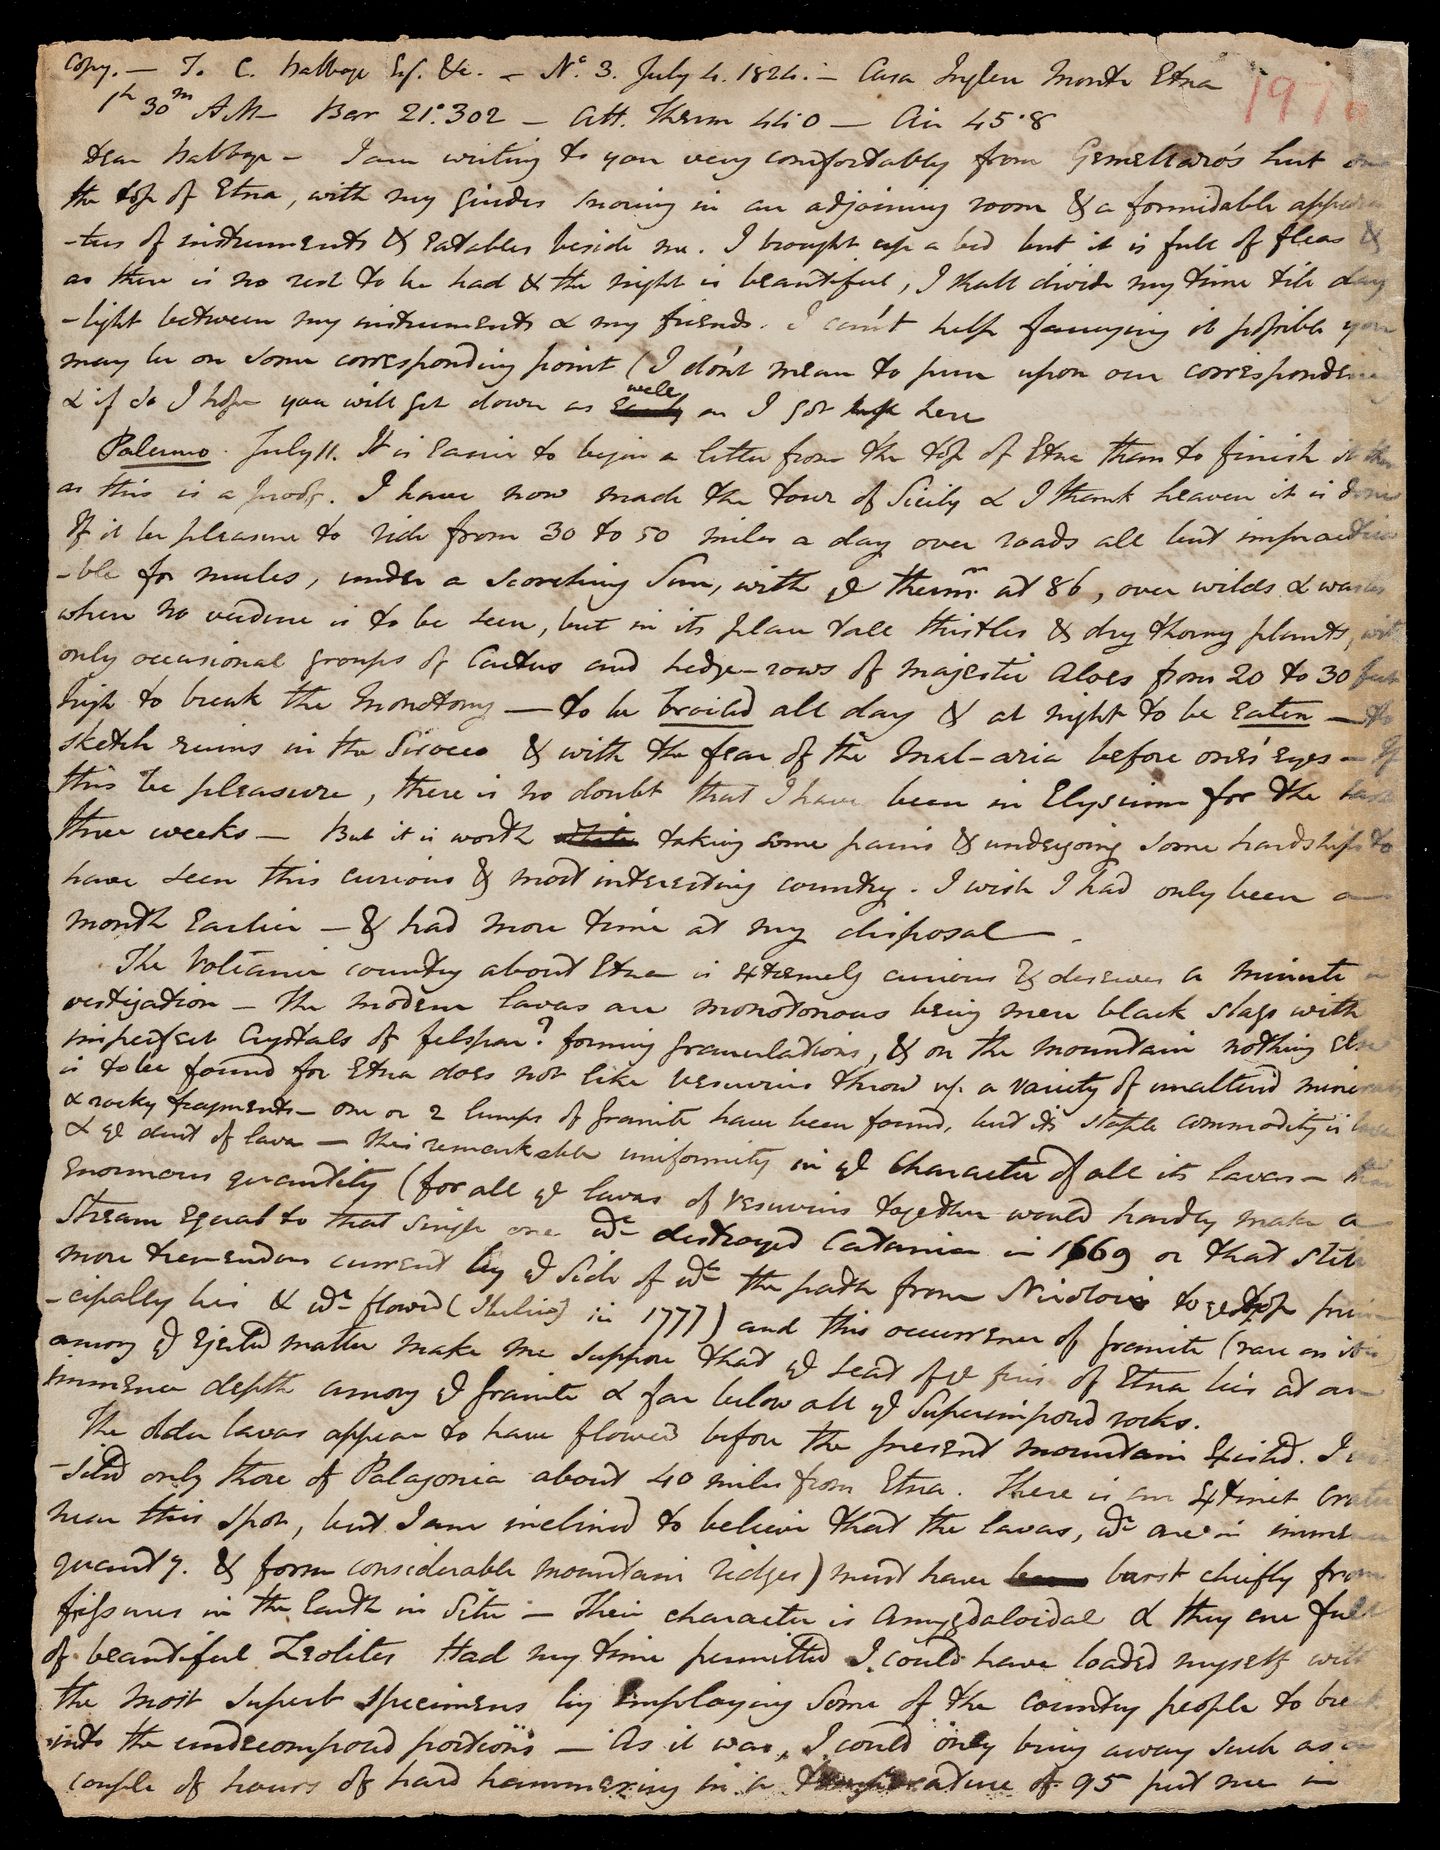 Copy. — T. C. Babbage Esq. &c. — No. 3. July 4. 1824. — Casa Inglese Monte Etna
197
1h 30m AM — Bar 21.302 — Att. Therm 44.0 — Air 45.8
Dear Babbage — I am writing to you very comfortably from Gemellaro's hut on
the top of Etna, with my guides snoring in an adjoining room & a formidable appara
-tus of instruments & eatables beside me. I brought up a bed but it is full of fleas &
as there is no rest to be had & the night is beautiful, I shall divide my time till day
-light between my instruments & my friends. I can't help fancying it possible you
may be on some corresponding point (I don't mean to pun upon our correspondence)
& if so I hope you will get down as well as I got up here
Palermo. July 11. It is easier to begin a letter from the top of Etna than to finish it there
as this is a proof. I have now made the tour of Sicily & I thank heaven it is done
If it be pleasure to ride from 30 to 50 miles a day over roads all but impractica
-ble for mules, under a scorching Sun, with ye therm. at 86, over wilds & wastes
where no verdure is to be seen, but in its place tall thistles & dry thorny plants, with
only occasional groups of Cactus and hedge-rows of majestic Aloes from 20 to 30 feet
high to break the monotony — to be broiled all day & at night to be eaten — to
sketch ruins in the Sirocco & with the fear of the Mal-aria before one's eyes — If
this be pleasure, there is no doubt that I have been in Elysium for the last
three weeks — But it is worth taking some pains & undergoing some hardships to
have seen this curious & most interesting country. I wish I had only been a
month earlier — & had more time at my disposal —.
The Volcanic country about Etna is extremely curious & deserves a minute in
vestigation — The modern lavas are monotonous being mere black slags with
imperfect Crystals of felspar? forming granulations, & on the mountain nothing else
is to be found for Etna does not like Vesuvius throw up a variety of unaltered minerals
& rocky fragments — one or 2 lumps of granite have been found, but its staple commodity is lava
& ye dust of lava — This remarkable uniformity in ye Character of all its lavas — their
enormous quantity (for all ye lavas of Vesuvius together would hardly make a
stream equal to that single one wch destroyed Catania in 1669 or that still
more tremendous current by ye side of wch the path from Nicolosi to ye top prin
-cipally lies & wch flowed in 1777) and this occurrence of granite (rare as it is)
among ye ejected matter make me suppose that ye seat of ye fires of Etna lies at an
immense depth among ye granite & far below all ye Superimposed rocks.
The older lavas appear to have flowed before the present mountain existed. I vi
-sited only those of Palagonia about 40 miles from Etna. There is an extinct Crater
near this spot, but I am inclined to believe that the lavas, wch are in immense
quanty. & form considerable mountain ridges) must have burst chiefly from
fissures in the Earth in Situ — Their character is Amygdaloidal & they are full
of beautiful Zeolites Had my time permitted I could have loaded myself with
the most superb specimens by employing some of the country people to break
into the undecomposed portions — As it was, I could only bring away such as a
couple of hours of hard hammering in a temperature of 95 put me in